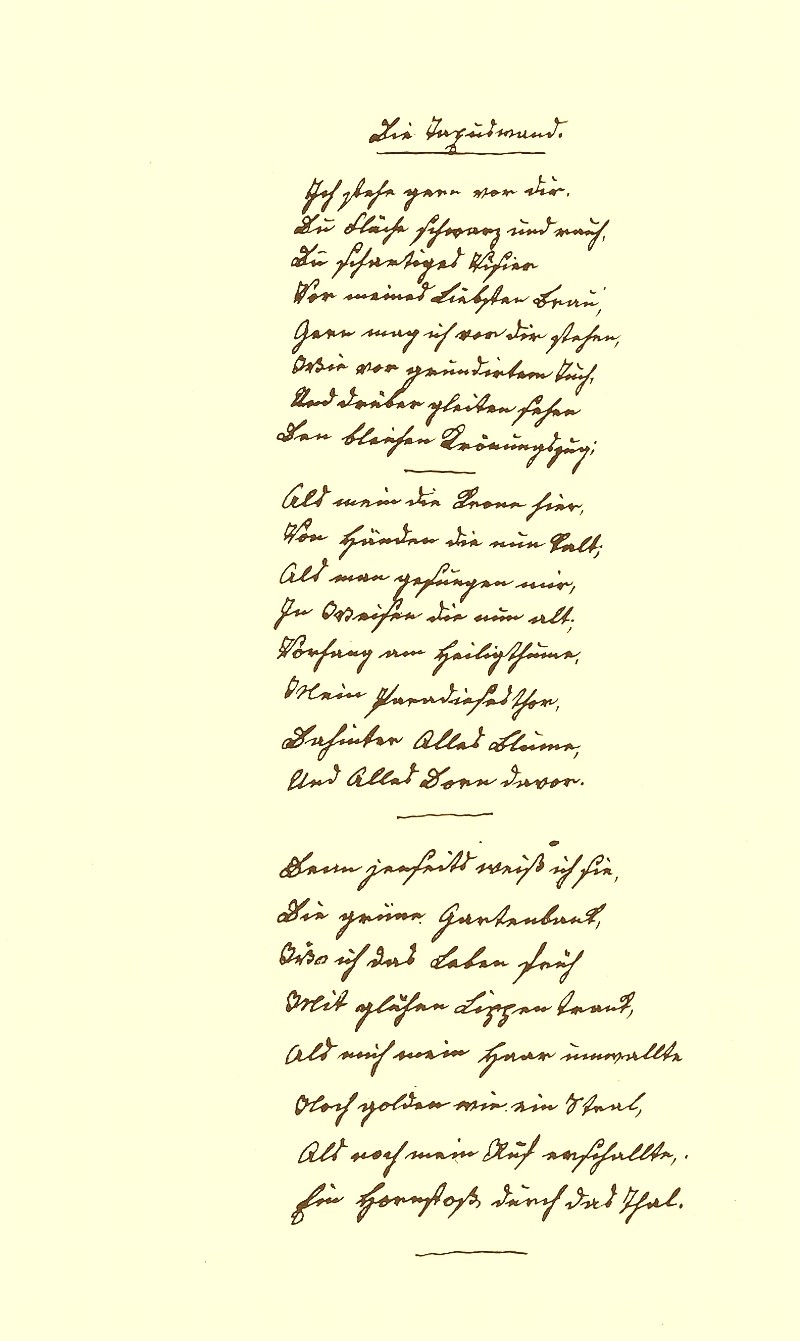 Die Taxuswand.
Ich stehe gern vor dir.
Du Fläche schwarz und rauh,
Du schartiges Visier
Vor meines Liebsten Brau',
Gern mag ich vor dir stehen,
Wie vor grundirtem Tuch,
Und drüber gleiten sehen
Den bleichen Krönungszug;
Als mein die Krone hier,
Von Händen die nun kalt;
Als man gesungen mir,
In Weisen die nun alt;
Vorhang am Heiligthume,
Mein Paradiesesthor,
Dahinter Alles Blume,
Und Alles Dorn davor.
Denn jenseits weiß ich sie,
Die grüne Gartenbank,
Wo ich das Leben früh
Mit glühen Lippen trank,
Als mich mein Haar umwallte
Noch golden wie ein Stral,
Als noch mein Ruf erschallte,
Ein Hornstoß durch das Thal.